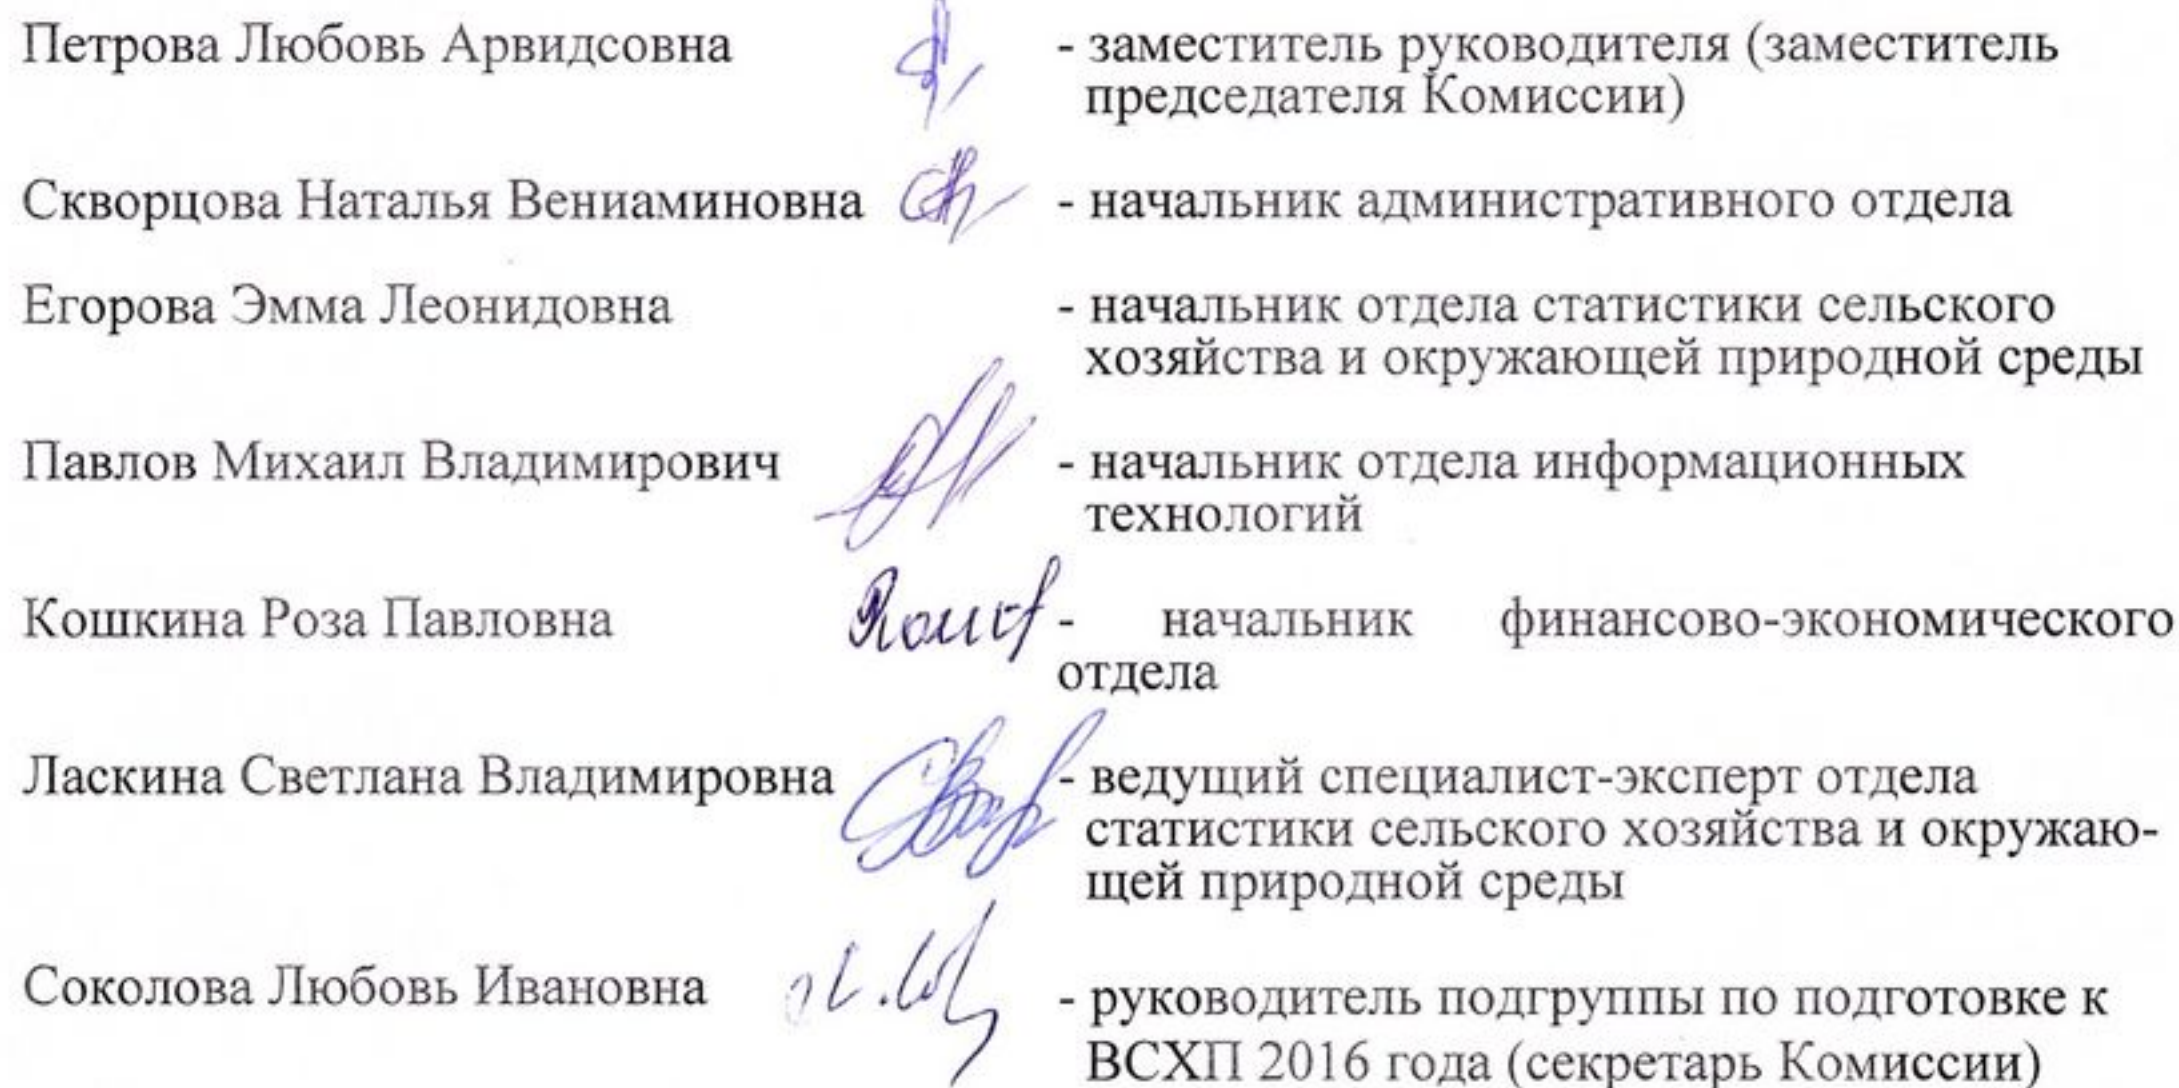 Петрова Любовь Арвидсовна - заместитель руководителя (заместитель
председателя Комиссии)
Скворцова Наталья Вениаминовна - начальник административного отдела
Егорова Эмма Леонидовна - начальник отдела статистики сельского
хозяйства и окружающей природной среды
Павлов Михаил Владимирович - начальник отдела информационных
технологий
Кошкина Роза Павловна - начальник финансово-экономического
отдела
Ласкина Светлана Владимировна - ведущий специалист-эксперт отдела
статистики сельского хозяйства и окружаю-
щей природной среды
Соколова Любовь Ивановна - руководитель подгруппы по подготовке к
ВСХП 2016 года (секретарь Комиссии)